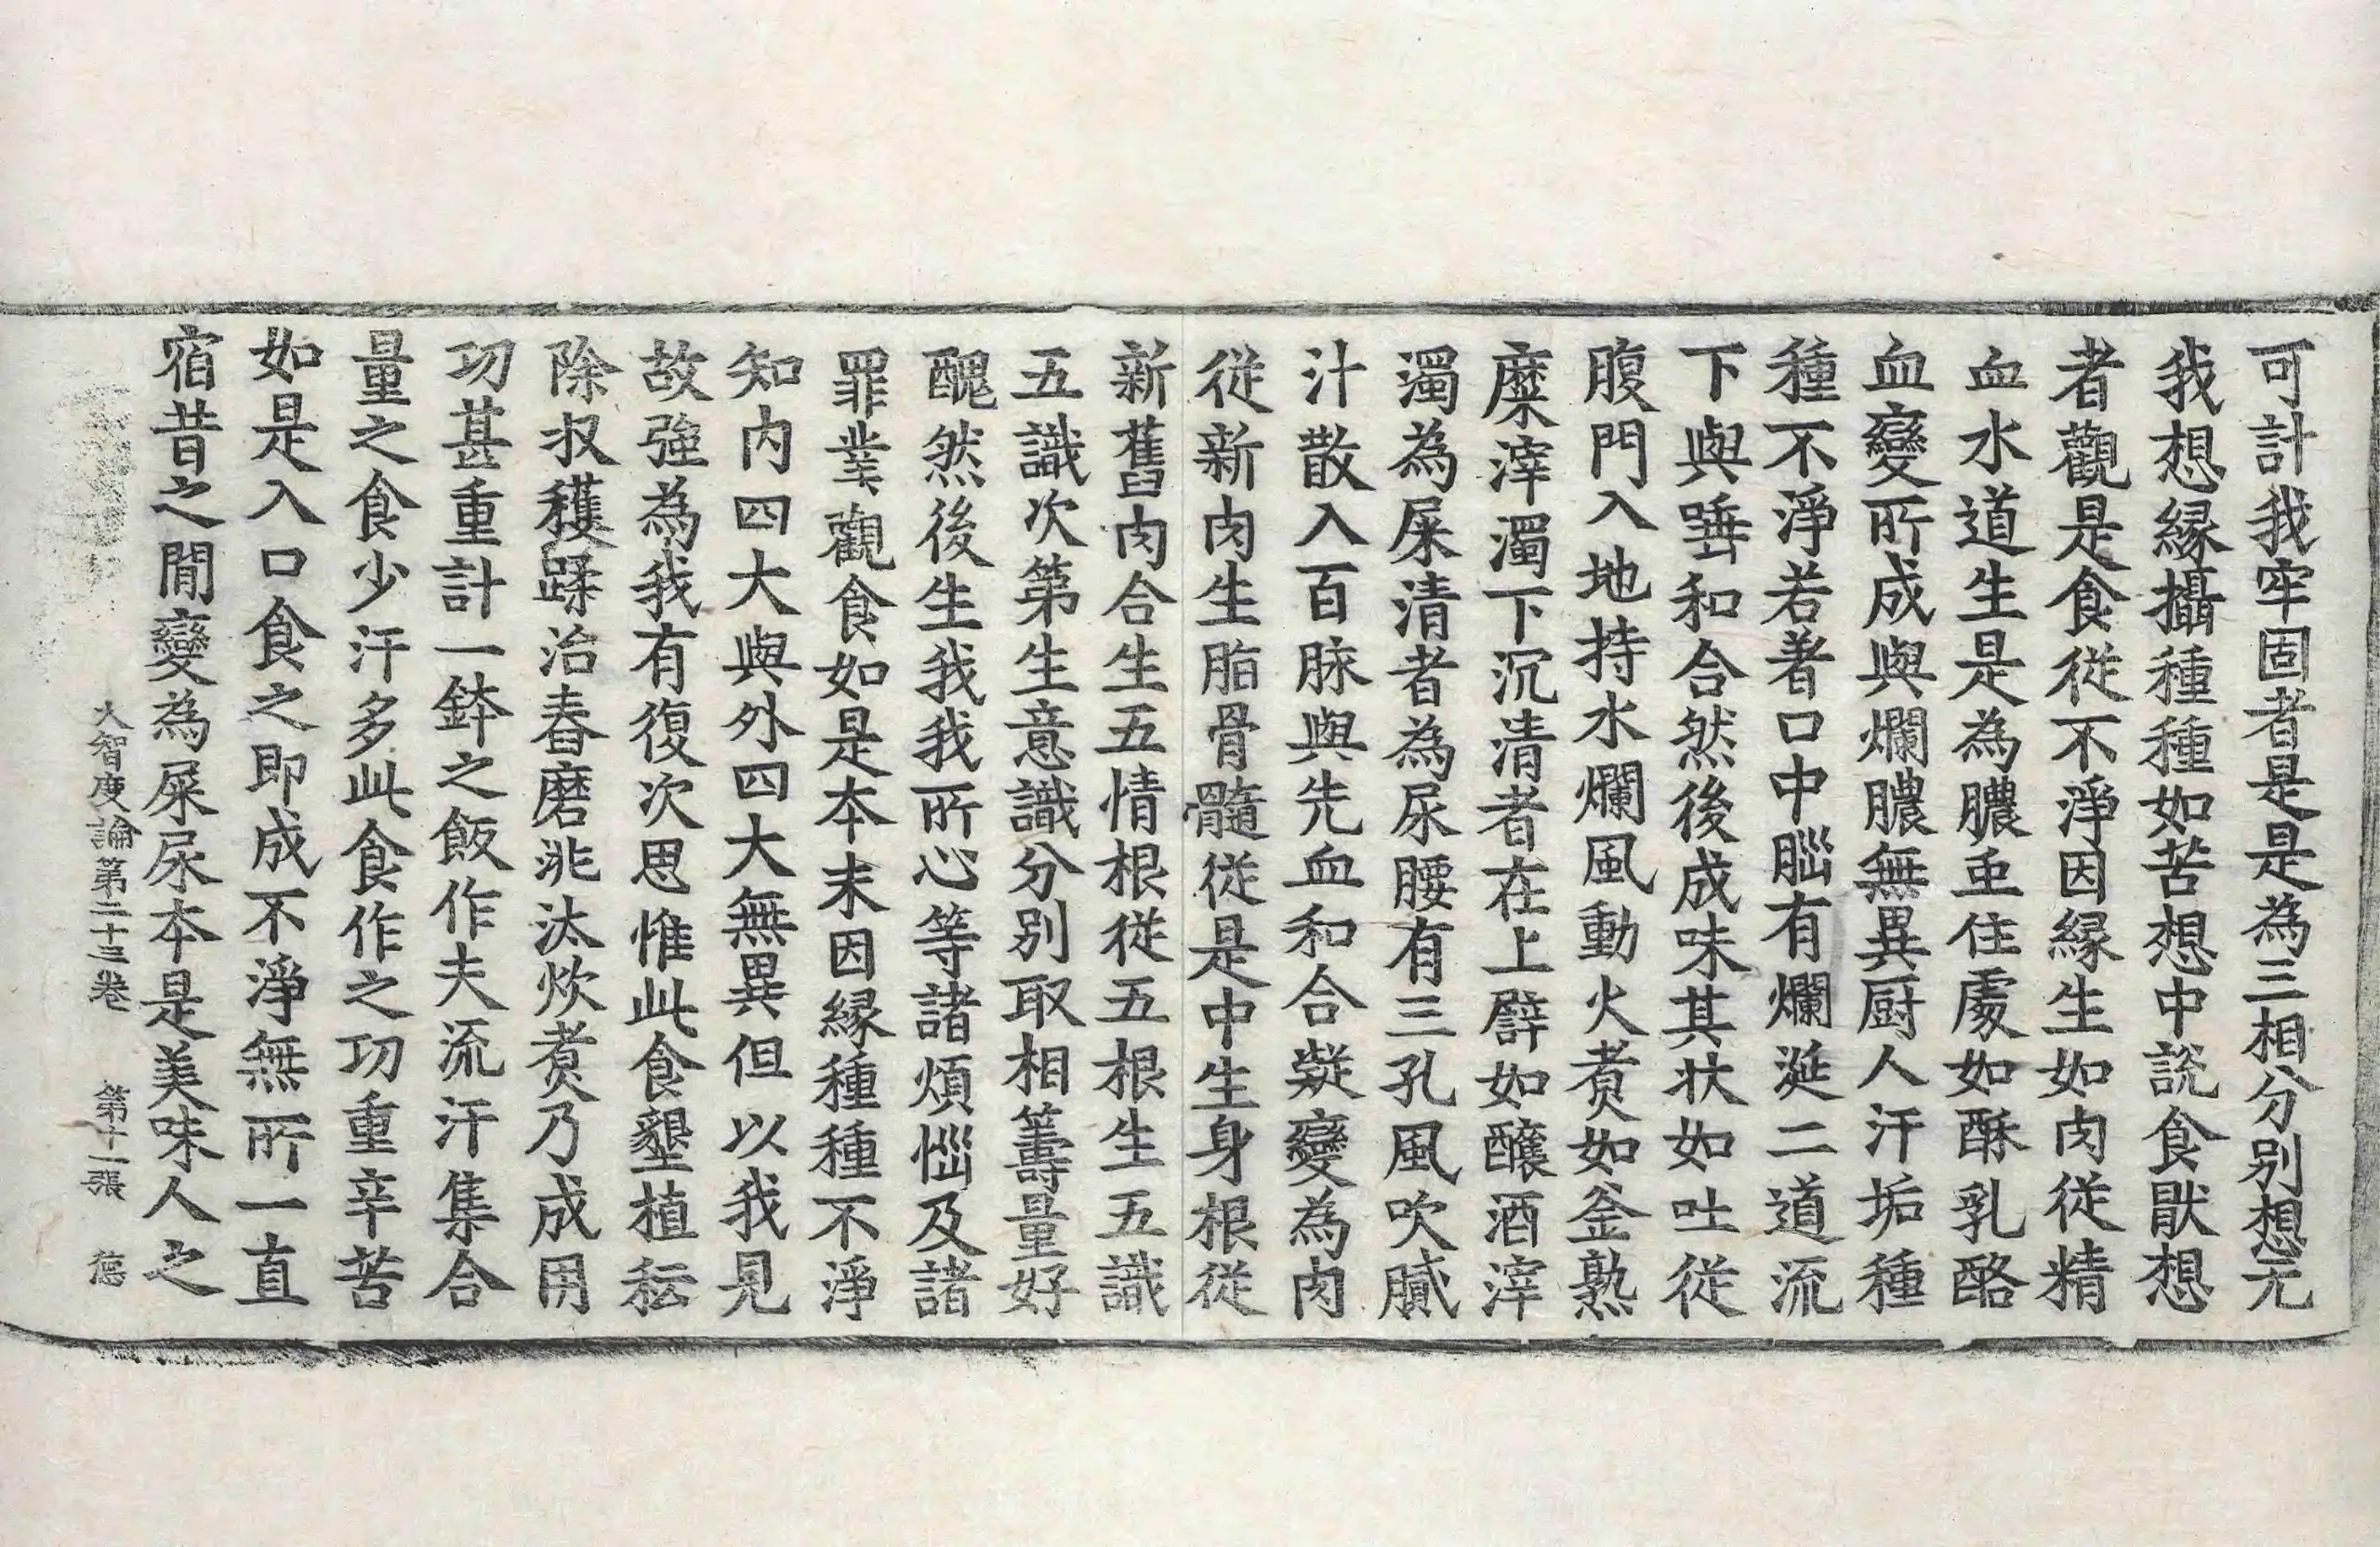 可計我牢固者是是為三相分別想无
我想縁攝種種如苦想中說食猒想
者觀是食從不淨因縁生如肉從精
血水道生是為膿虫住處如酥乳酪
血變所成與爛膿無異厨人汗垢種
種不淨若著口中腦有爛涎二道流
下與唾和合然後成味其状如吐從
腹門入地持水爛風動火煮如釜熟
糜滓濁下沉清者在上譬如釀酒滓
濁為屎清者為尿腰有三孔風吹膩
汁散入百脉與先血和合凝變為肉
從新肉生脂骨髓從是中生身根從
新舊肉合生五情根從五根生五識
五識次第生意識分別取相籌量好
醜然後生我我所心等諸煩惱及諸
罪業觀食如是本末因縁種種不淨
知內四大與外四大無異但以我見
故強為我有復次思惟此食墾植耘
除収穫蹂治舂磨洮汰炊煮乃成用
功甚重計一鉢之飯作夫流汗集合
量之食少汗多此食作之功重辛苦
如是入口食之即成不淨無所一直
宿昔之閒變為屎尿本是美味人之
大智度論第二十三卷 第十一張 德